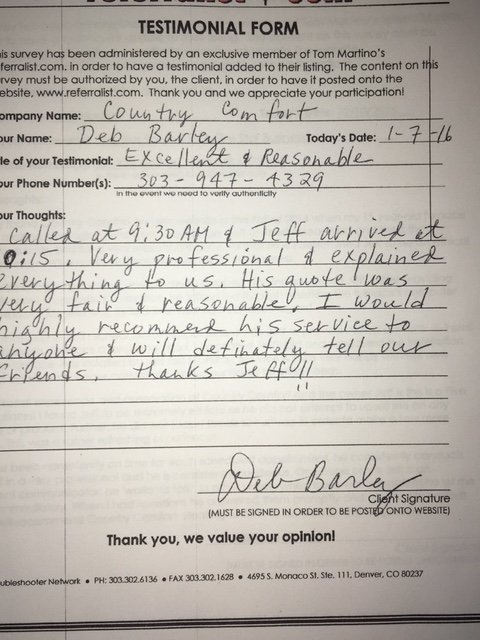 TESTIMONIAL FORM
is survey has been administered by an exclusive member of Tom Martino's
eferralist.com. in order to have a testimonial added to their listing. The content on this
rvey must be authorized by you, the client, in order to have it posted onto the
ebsite, www.referralist.com. Thank you and we appreciate your participation!
ompany Name: Country Comfort
our Name: Deb Barley Today's Date: 1-7-16
le of your Testimonial: Excellent & Reasonable
our Phone Number(s): 303-947-4329
In the event we need to verify authenticity
our Thoughts:
called at 9:30 AM & Jeff arrived at
0:15. Very professional & explained
everything to us. His quote was
very fair & reasonable. I would
highly recommend his service to
anyone & will definately tell our
friends. thanks Jeff!!
Deb Barley
Client Signature
(MUST BE SIGNED IN ORDER TO BE POSTED ONTO WEBSITE)
Thank you, we value your opinion!
oubleshooter Network • PH: 303.302.6136 • FAX 303.302.1628 • 4695 S. Monaco St. Ste. 111, Denver, CO 80237